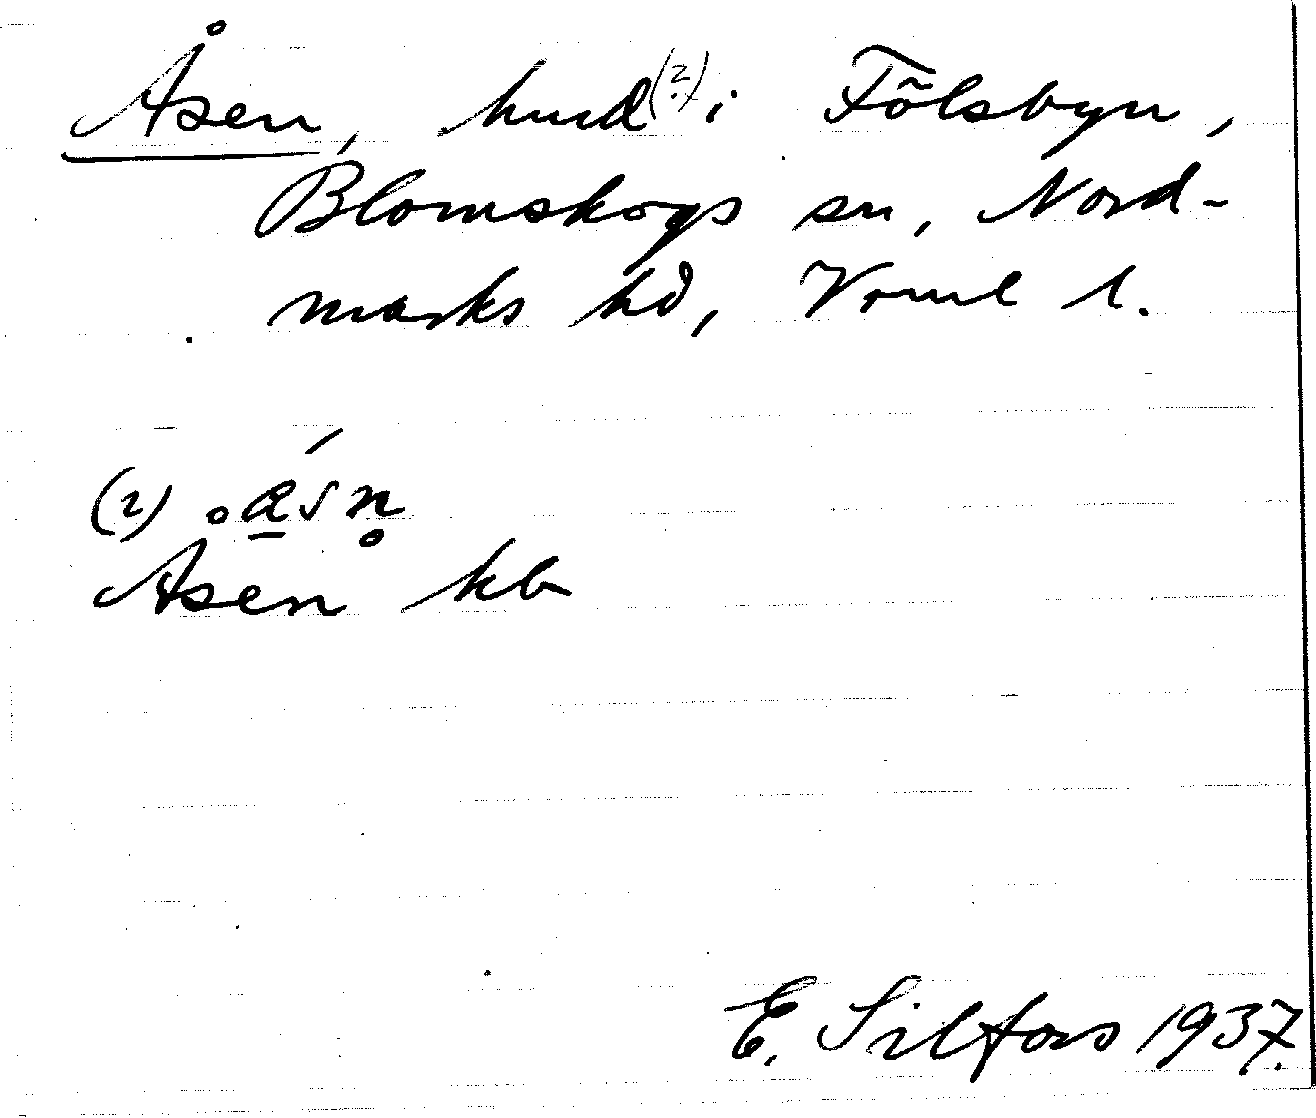 Åsen, husd(?) i Fölsbyn,
Blomskogs sn, Nord-
marks hd, Värml l.
(2)
Åsen kb
E. Silfors 1937.